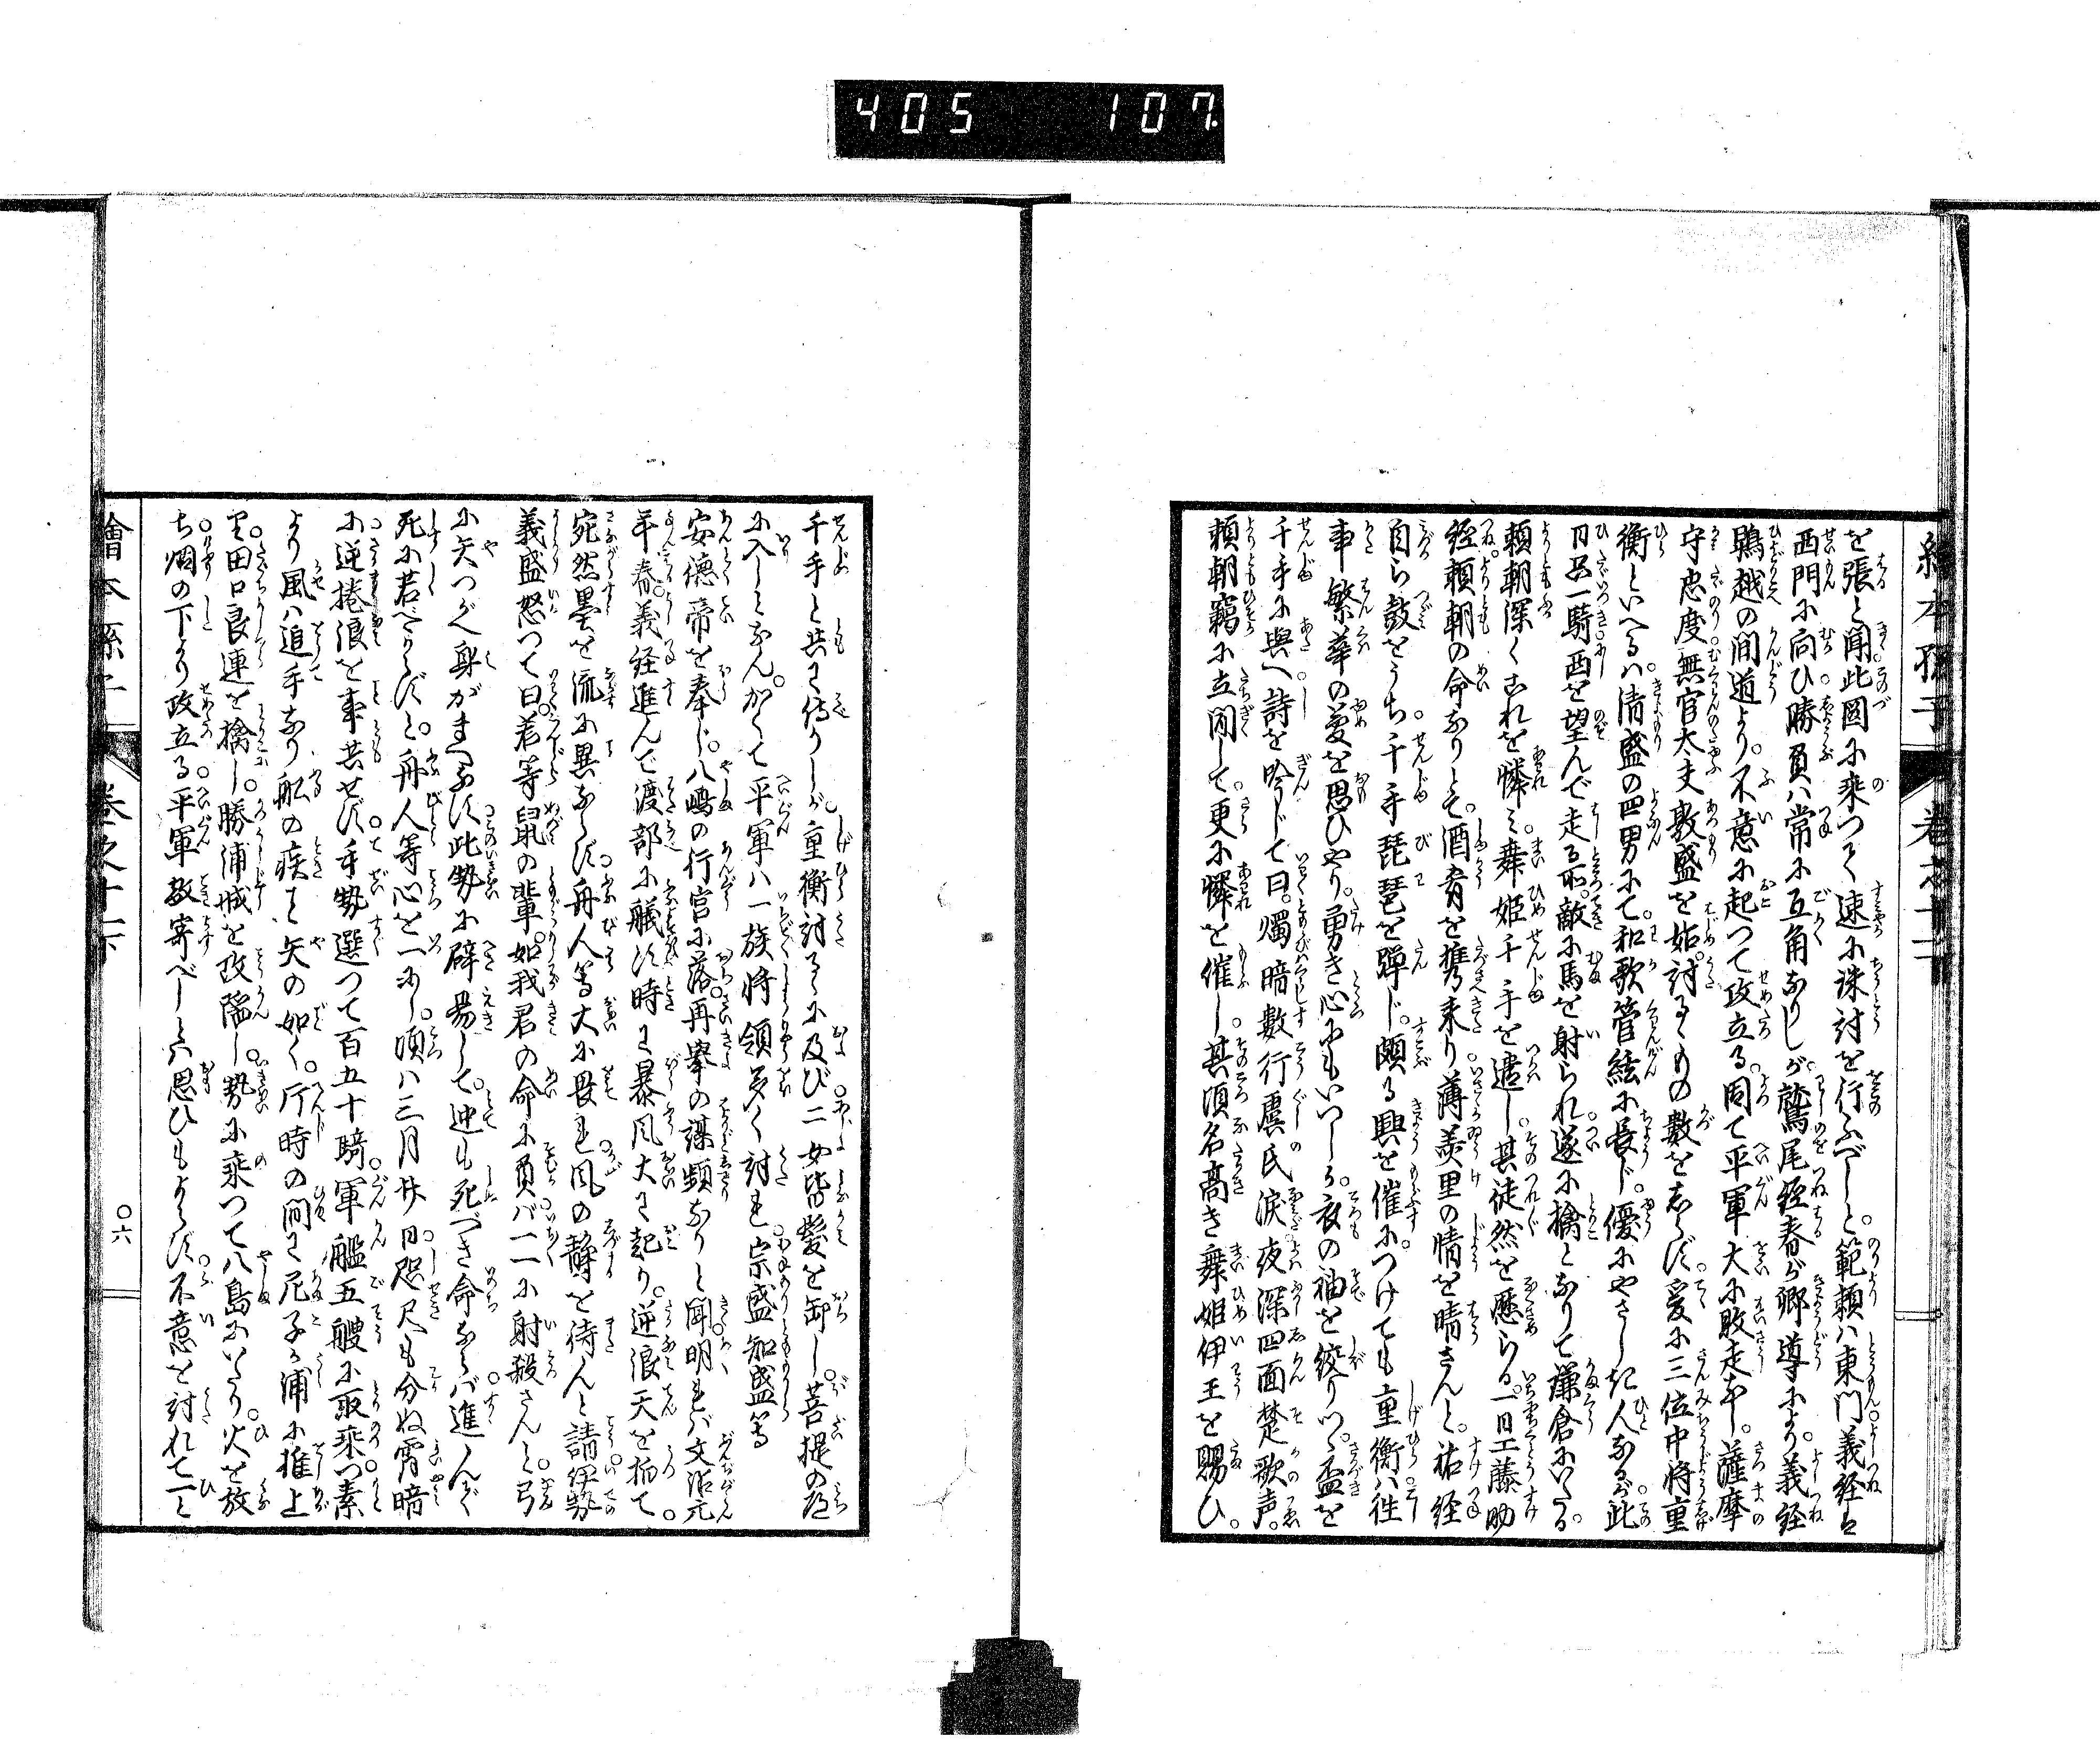 405 107
を張と聞此図に乗つて速に誅討を行ふべしと。範頼ハ東門義経は
西門に向ひ。勝負ハ常に互角なりしが。鷲尾経春が郷導により。義経
鵯越の間道より。不意に起つて攻立る。因て平軍大に敗走なし。薩摩
守忠度。無官大夫敦盛を始。討るゝもの数をしらず。爰に三位中将重
衡といへるハ。清盛の四男にて。和歌管絃に長じ。優にやさしき人なるが。此
日只一騎西を望んで走る所。敵に馬を射られ遂に擒となりて鎌倉にいたる。
頼朝深くこれを憐ミ。舞姫千手を遣し。其徒然を慰らる。一日工藤助
経頼朝の命なりとて。酒肴を携来り。薄羹里の情を晴さんと。祐経
自ら鼓をうち。千手琵琶を弾じ。頗る興を催に。つけても重衡ハ往
事繁華の夢を思ひやり。勇き心にもいつしか。衣の袖を絞りつゝ。盃を
千手に与へ。詩を吟じて曰。燭暗数行虞氏涙。夜深四面楚歌声。
頼朝竊に立聞して。更に憐を催し。其頃名高き舞姫伊王を賜ひ。
千手と共に侍りしが。重衡討るゝに及び。二女皆髪を卸し。菩提の道
に入しとなん。かくて平軍ハ一族将領多く討れ。宗盛知盛等
安徳帝を奉じ。八嶋の行宮に落。再挙の謀頻なりと聞。明れバ文治元
年春。義経進んで渡部に艤す。時に暴風大に起り。逆浪天を拍て。
宛然墨を流に異ならず。舟人等大に畏れ。風の静を待んと請。伊勢
義盛怒つて曰。若等鼠の輩。如我君の命に負バ一一に射殺さんと。弓
に矢つがへ身がまへなす。此勢に辟易して。迚も死べき命ならバ。進んで
死に若べからずと。舟人等心を一にし。頃ハ三月廿日。咫尺も分ぬ宵暗
に。逆捲浪を事共せず。手勢選つて百五十騎。軍艦五艘に取乗つ。素
より風ハ追手なり。舩の疾こと矢の如く。片時の間に尼子が浦に推上
り。田口良連を擒し。勝浦城を攻陥し。勢に乗つて八島にいたり。火を放
ち烟の下より攻立る。平軍敵寄べしとハ思ひもよらず。不意を討れて一と
絵本孫子
巻之十二
繪本孫子
巻之十下
〇六